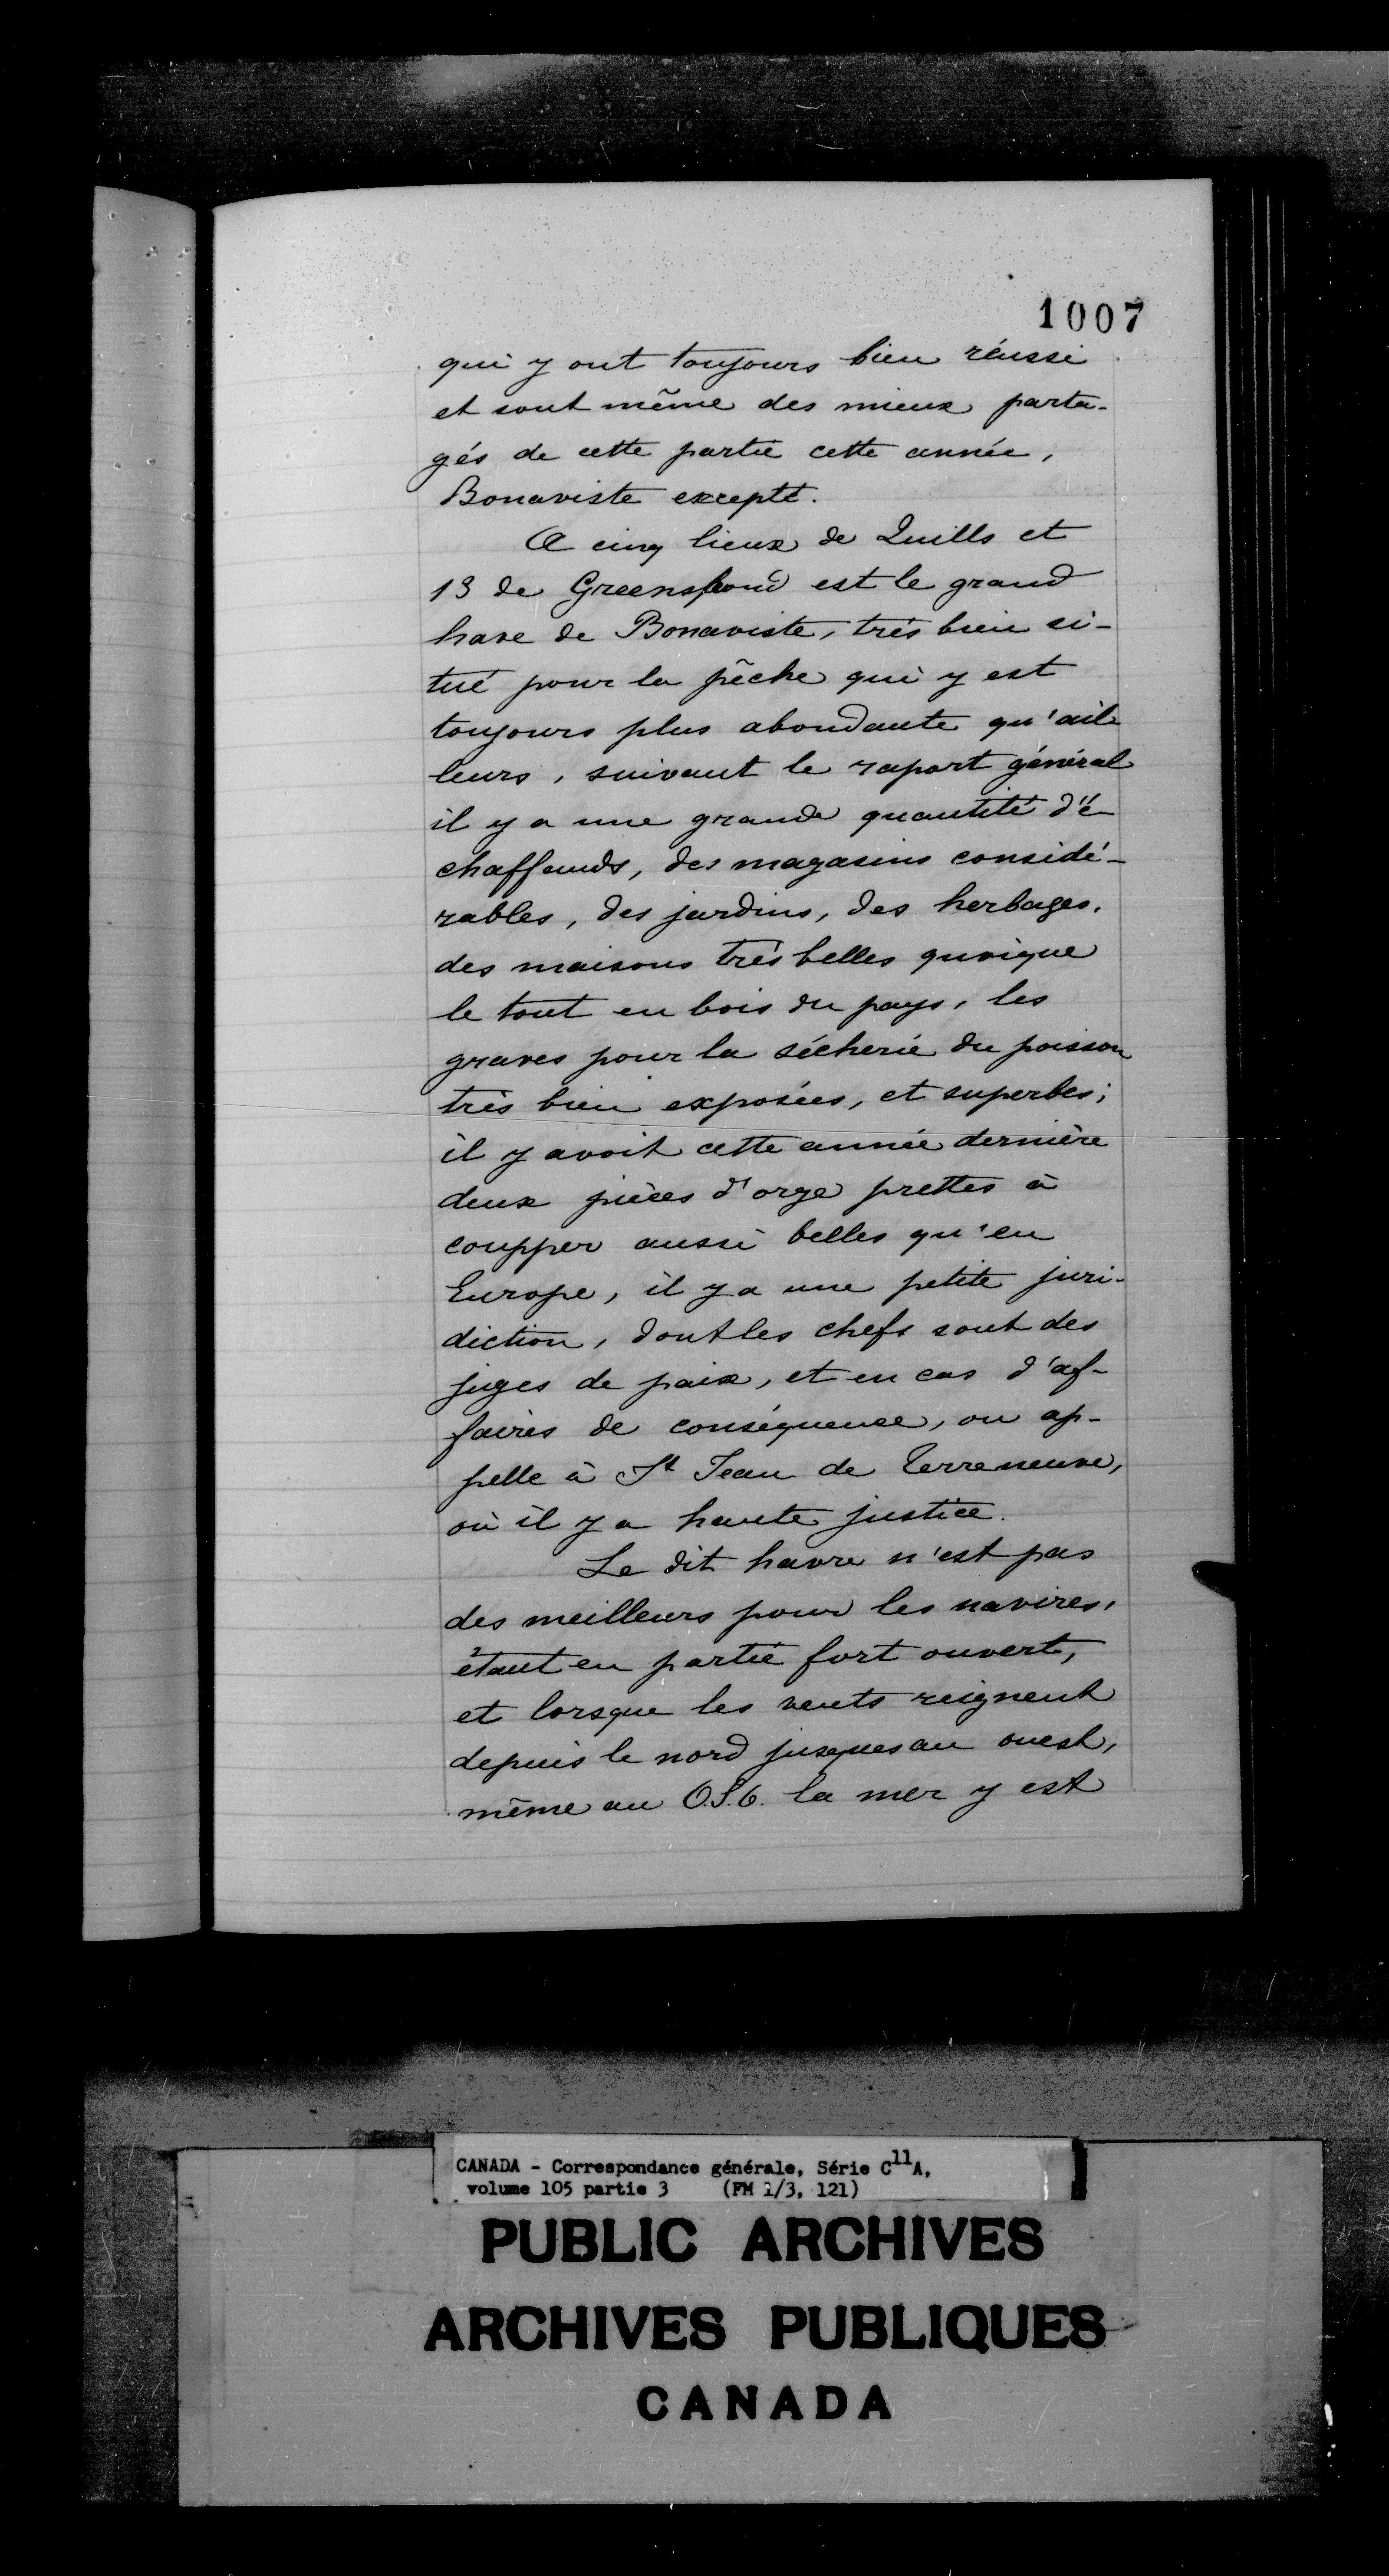 1007
qui y ont toujours bien réussi
et sont même des mieux parta-
gés de cette partie cette année,
Bonaviste excepté.
A cinq lieux de Quills et
13 de Greenspond est le grand
havre de Bonaviste, très bien si-
tué pour la pêche qui y est
toujours plus abondante qu'ail-
leurs, suivant le raport général
il y a une grande quantité d'é-
chaffauds, des magasins considé-
rables, des jardins, des herbages,
des maisons très belles quoique
le tout en bois du pays, les
graves pour la sécherie du poisson
très bien exposées, et superbes;
il y avoit cette année dernière
deux pièces d'orge prettes à
coupper aussi belles qu'en
Europe, il y a une petite juri-
diction, dont les chefs sont des
juges de paix, et en cas d'af-
faires de conséquence, on ap-
pelle à St Jean de Terreneuve,
où il y a haute justice.
Le dit havre n'est pas
des meilleurs pour les navires,
étant en partie fort ouvert,
et lorsque les vents reignent
depuis le nord jusques au ouest,
même au O.S.O. la mer y est
CANADA - Correspondance générale, Série C11A,
volume 105 partie 3 (FM 1/3, 121)
PUBLIC ARCHIVES
ARCHIVES PUBLIQUES
CANADA